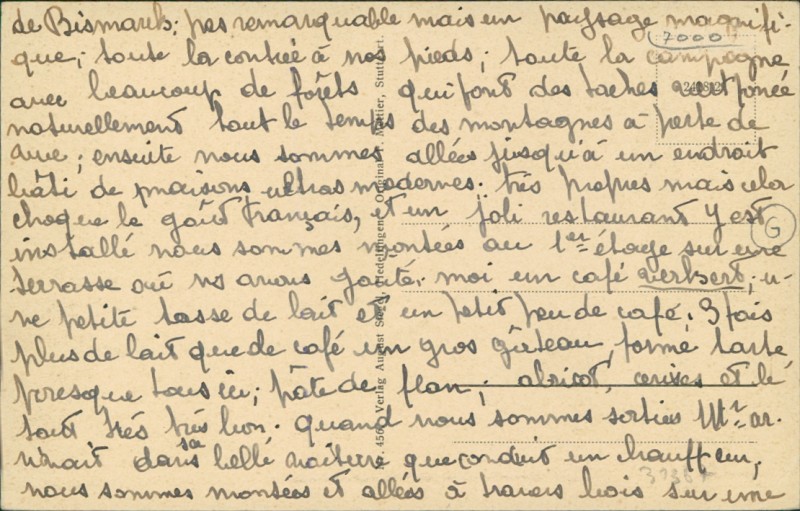 de Bismark; pas remarquable mais un paysage magnifi-
7000
que; toute la contrée à nos pieds; toute la campagne
avec beaucoup de forêts qui font des taches vert foncé
naturellement tout le temps des montagnes à perte de
vue; ensuite nous sommes allées jusqu'à un endroit
bâti de maisons ultras modernes; très propres mais cela
choque le goût français, et un joli restaurant y est
G
installé nous sommes montées au 1er étage sur une
terrasse où ns avons goûté; moi un café verkert; u-
ne petite tasse de lait et un petit peu de café; 3 fois
plus de lait que de café un gros gâteau, forme tarte
presque tous ici; pâte de flan; abricot, cerises et le
tout très très bon. quand nous sommes sorties Mr ar-
rivait dans sa belle voiture que conduit un chauffeur,
nous sommes montées et allées à travers bois sur une
Verlag August
Original